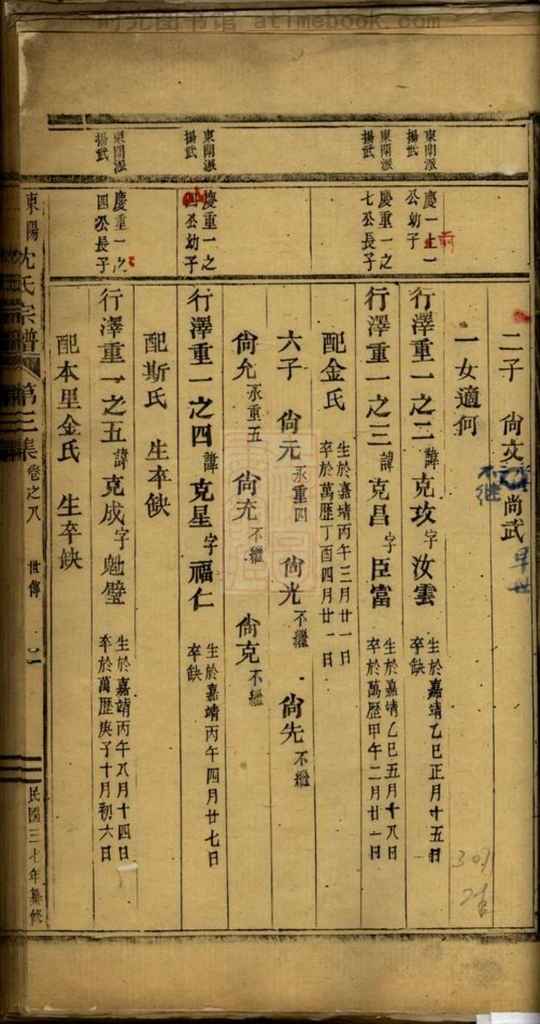 时光图书馆 atimebook.com
二子 尚文 尚武
不继
早世
一女適何
東閣派
揚武
慶一
公幼子
行澤重一之二 諱克攻 字汝雲
生於嘉靖乙巳正月十五日
卒缺
東閣派
揚武
慶重一之
七公長子
行澤重一之三 諱克昌 字臣富
生於嘉靖乙巳五月十八日
卒於萬歷甲午二月廿一日
配金氏
生於嘉靖丙午三月廿一日
卒於萬歷丁酉四月廿一日
六子 尙元 承重四 尙光 不繼 尙先 不繼
尙允 承重五 尙充 不繼 尙克 不繼
東閣派
揚武
慶重一之
四公幼子
行澤重一之四 諱克星 字福仁
生於嘉靖丙午四月廿七日
卒缺
配斯氏 生卒缺
東閣派
揚武
慶重一之
四公長子
行澤重一之五 諱克成 字
生於嘉靖丙午八月十四日
卒於萬歷庚子十月初六日
配本里金氏 生卒缺
東陽沈氏宗譜 第三集 卷之八 世傳
民國三七年纂修